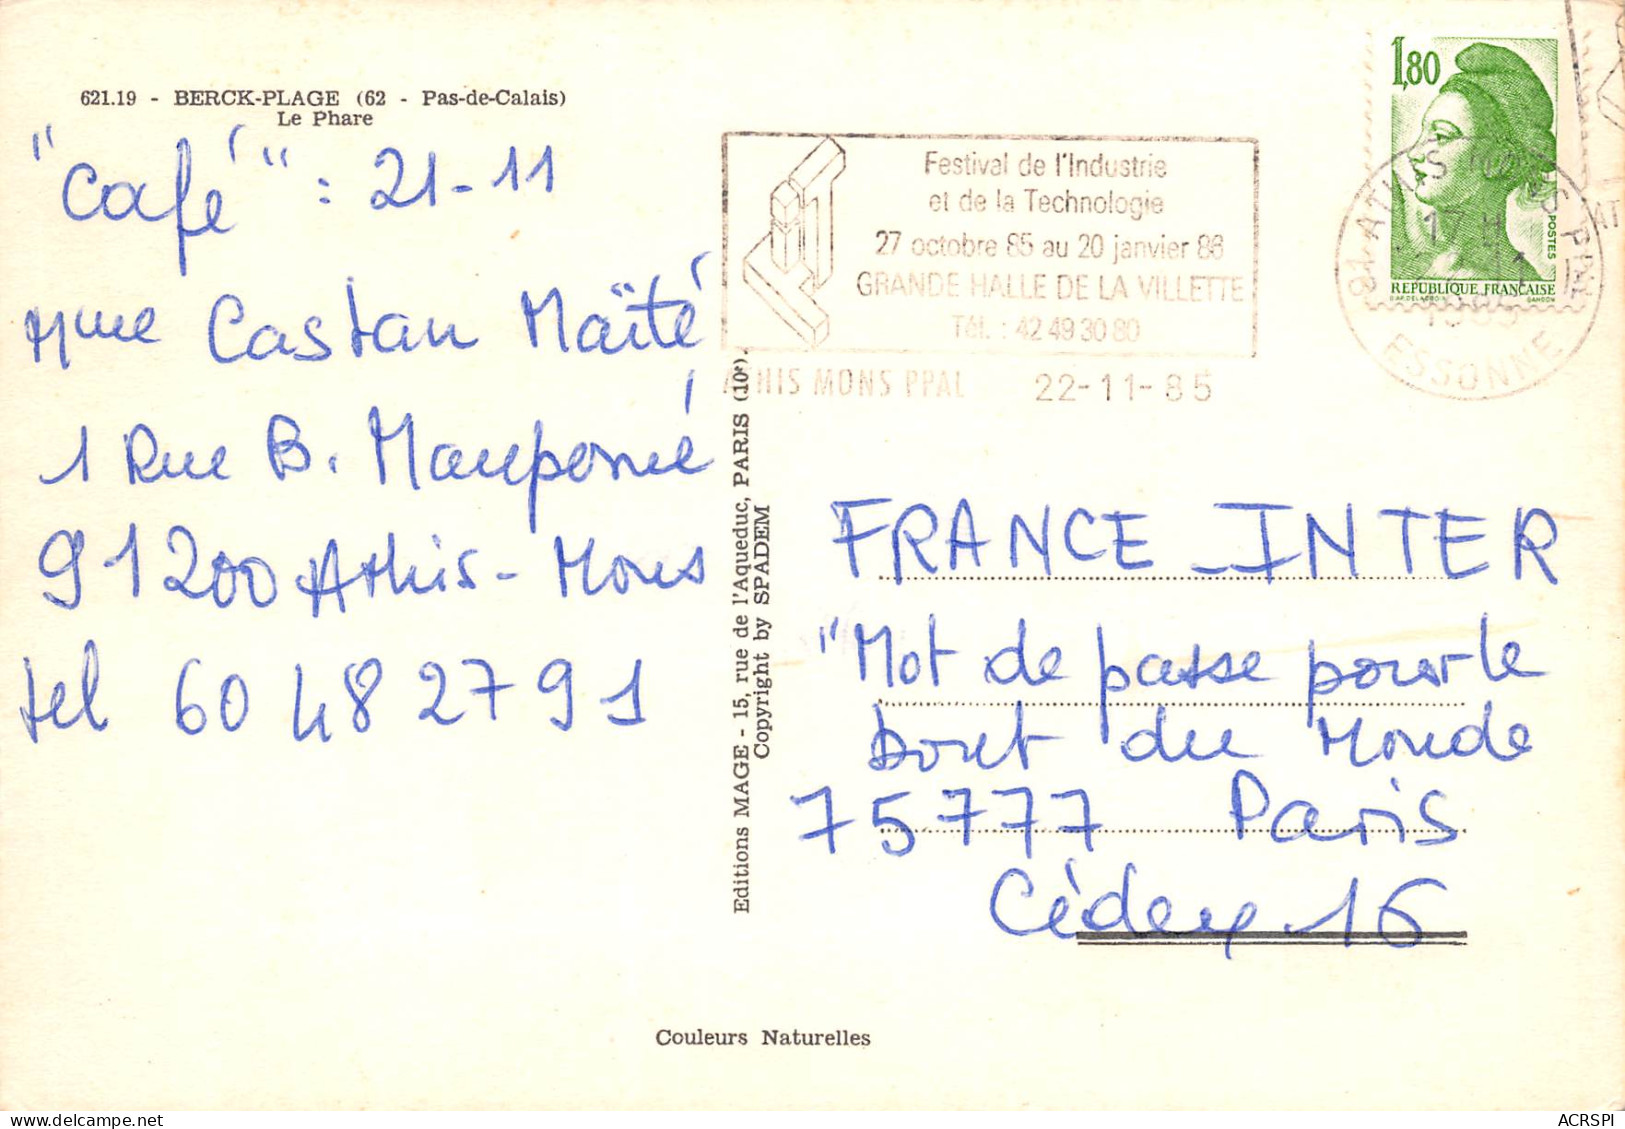 621.19 - BERCK-PLAGE (62 - Pas-de-Calais)
Le Phare
"Café" : 21-11
Mme Castan Maïté
1 Rue B. Mauponé
91200 Athis-Mons
tel 60 48 27 91
Editions MAGE - 15, rue de l'Aqueduc, PARIS (10e).
Copyright by SPADEM
Festival de l'Industrie
et de la Technologie
27 octobre 85 au 20 janvier 86
GRANDE HALLE DE LA VILLETTE
Tél. : 42 49 30 80
ATHIS MONS PPAL 22-11-85
1,80
POSTES
REPUBLIQUE FRANÇAISE
D'AP. DELACROIX GANDON
91 ATHIS MONS PPAL
17 H
22-11
1985
ESSONNE
AT
FRANCE-INTER
"Mot de passe pour le
bout du Monde
75777 Paris
Cèdex 16
Couleurs Naturelles
ACRSPI